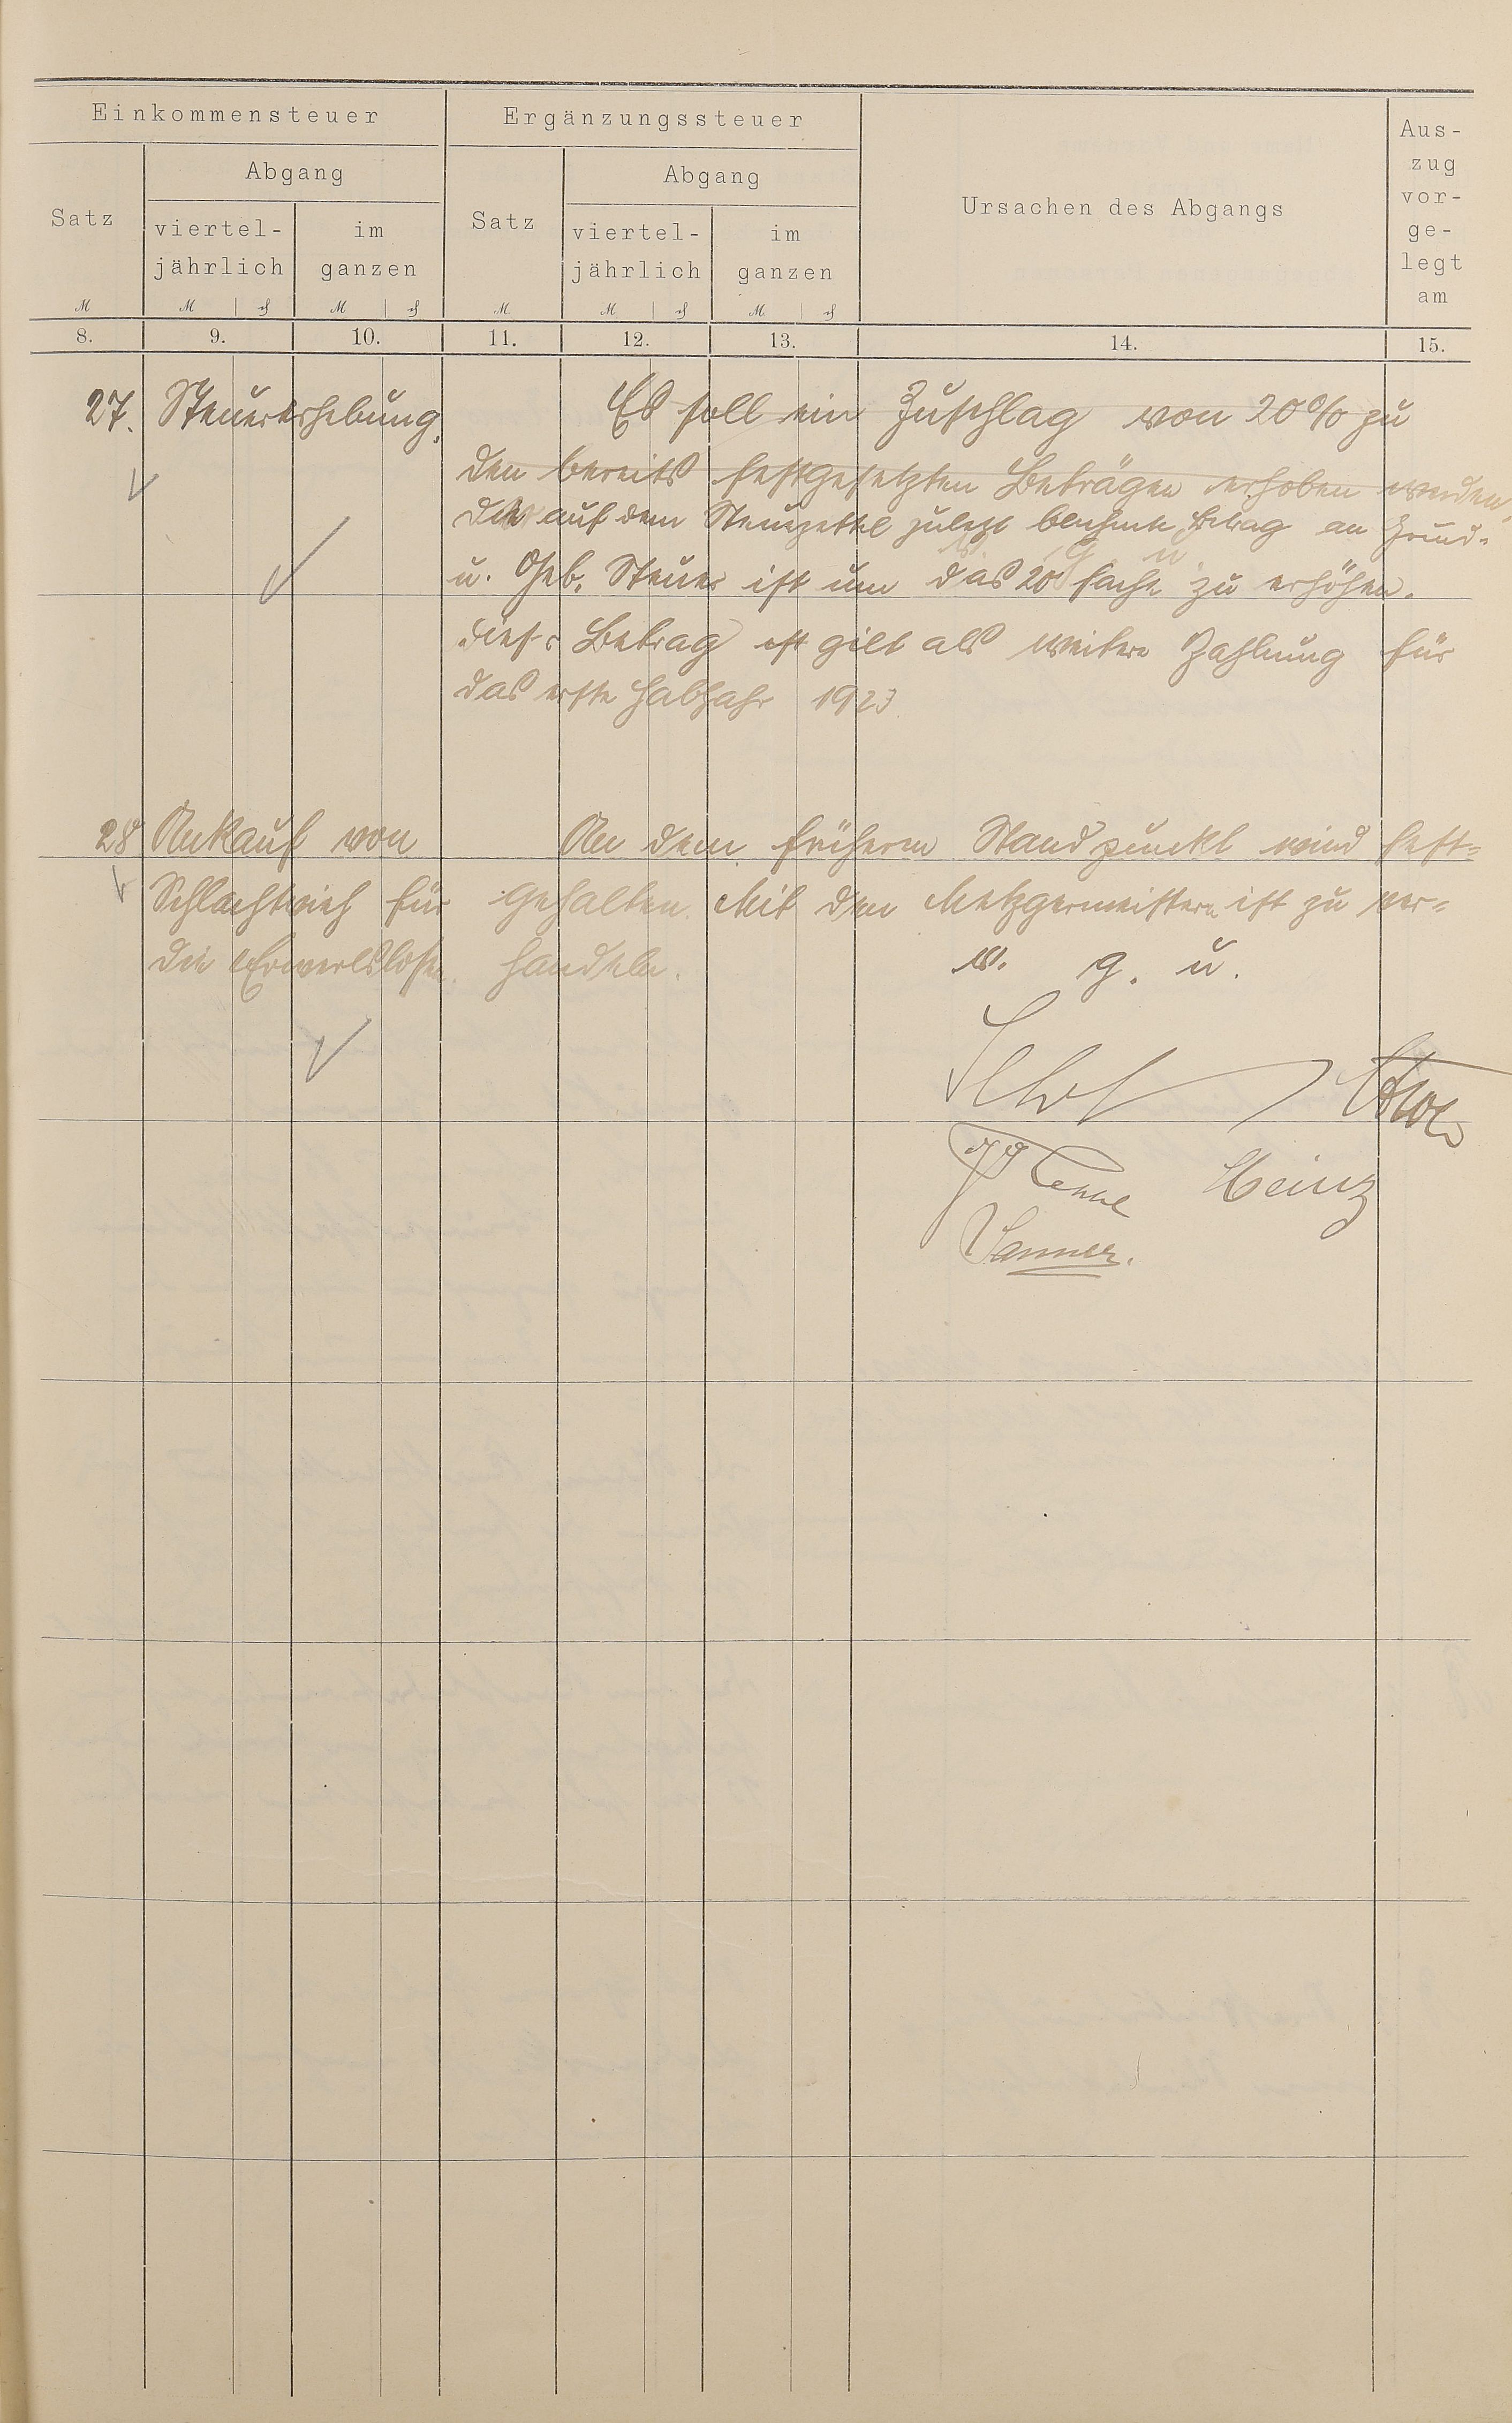 Einkommensteuer
Ergänzungssteuer
Ursachen des Abgangs
Aus-
zug
vor-
ge-
legt
am
Satz
Abgang
viertel-
jährlich
im
ganzen
Satz
Abgang
viertel-
jährlich
im
ganzen
M
M
M
M
M
M
8. 9. 10. 11. 12. 13. 14. 15.
27. Steuererhebung. Es soll ein Zuschlag von 20% zu
den bereits festgesetzten Beträgen erhoben werden.
auf dem Steuerzettel zuletzt Betrag an Grund-
u. Geb. Steuer ist um das 20 fache zu erhöhen.
Dieser Betrag ist gilt als weitere Zahlung für
das erste Halbjahr 1923
28 Ankauf von An dem früheren Standpunkt wird fest-
Schlachtvieh für gehalten. Mit den Metzgermeistern ist zu ver-
die Erwerbslosen. handeln.
v. g. u.
Heinz
Sanner.